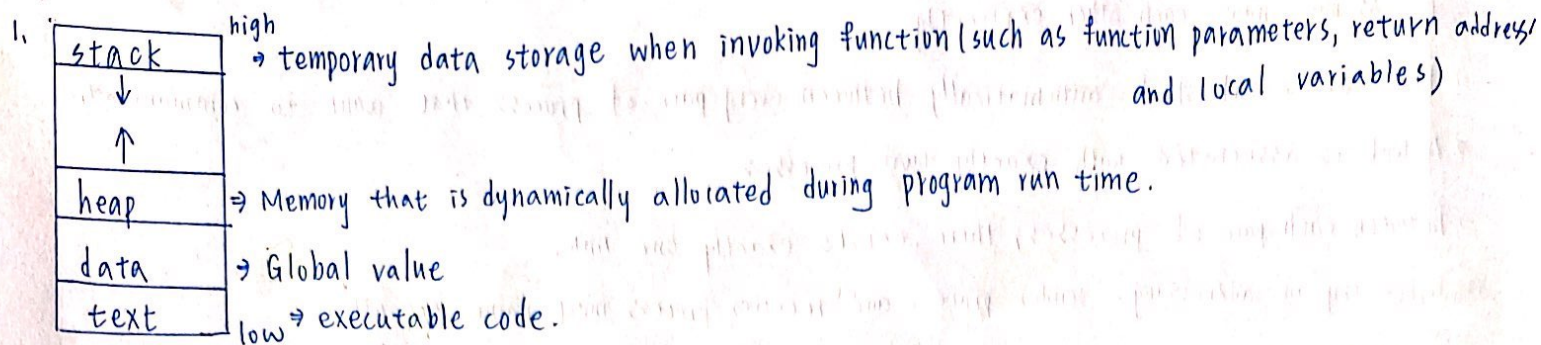 1.
high
stack ⇒ temporary data storage when invoking function (such as function parameters, return address,
↓ and local variables)
↑
heap ⇒ Memory that is dynamically allocated during program run time.
data ⇒ Global value
text low ⇒ executable code.